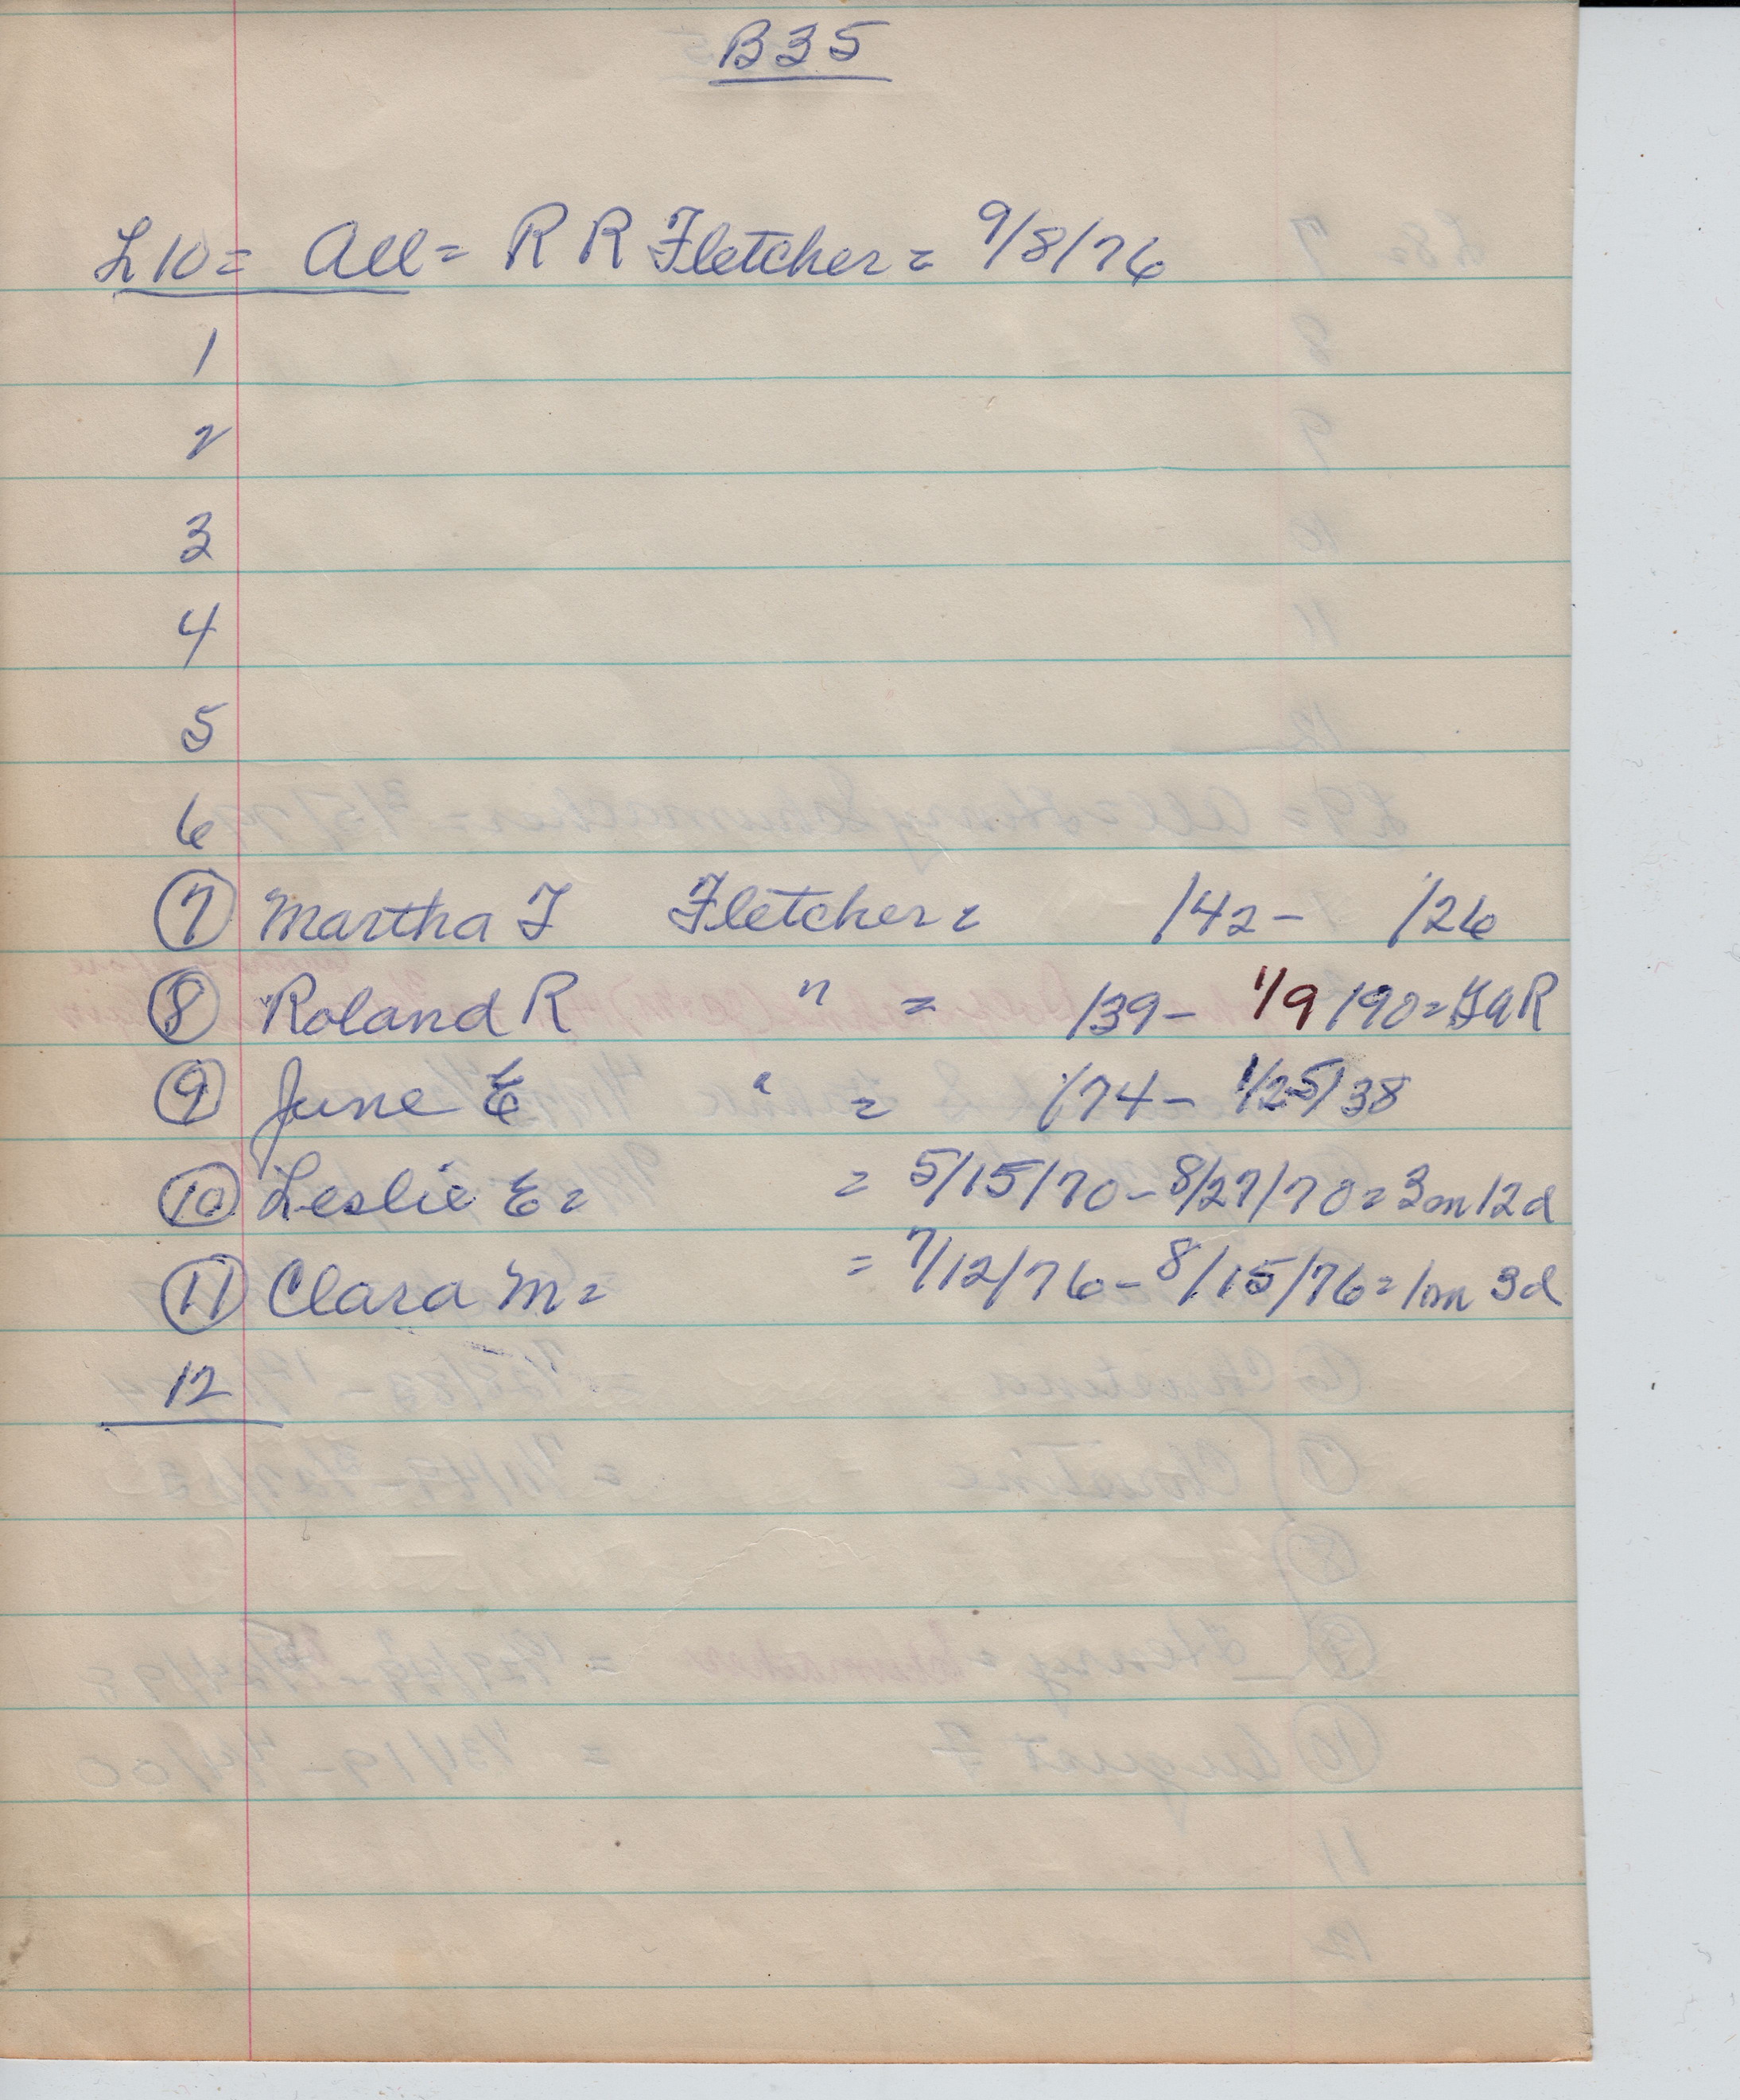 B35
L10= All= R R Fletcher = 9/8/76
1
2
3
4
5
6
7 Martha F Fletcher = /42 - /26
8 Roland R " = /39 - 1/9/90 = GAR
9 June E " = /74 - 1/25/38
10 Leslie E = = 5/15/70 - 8/27/70 = 3m 12d
11 Clara M = = 7/12/76 - 8/15/76 = 1m 3d
12